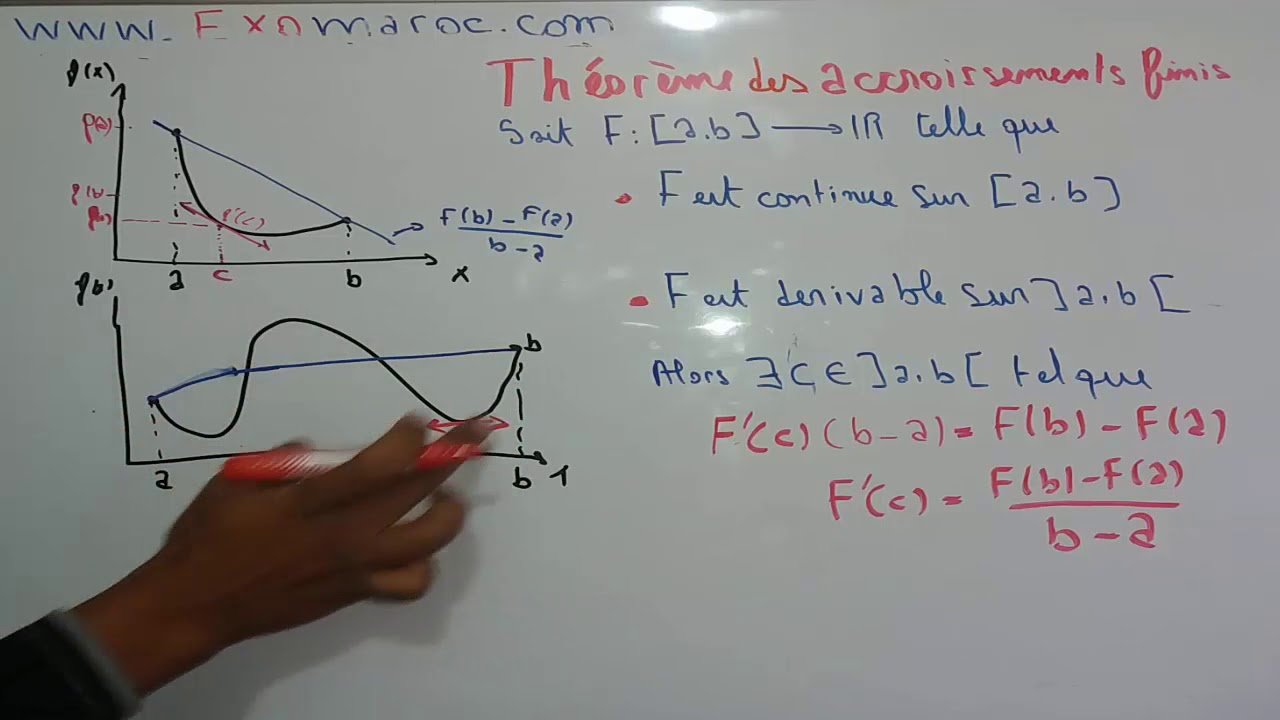 www.Exomaroc.com
Théorème des accroissements finis
Soit F: [a.b] → IR telle que
• F est continue sur [a.b]
• F est derivable sur ]a.b[
Alors ∃ C ∈ ]a.b[ tel que
F'(c)(b-a) = F(b) - F(a)
F'(c) = F(b) - F(a) / b - a
f(x)
f(a)
f(b)
f'(c)
F(b) - F(a) / b - a
a c b x
b
a b